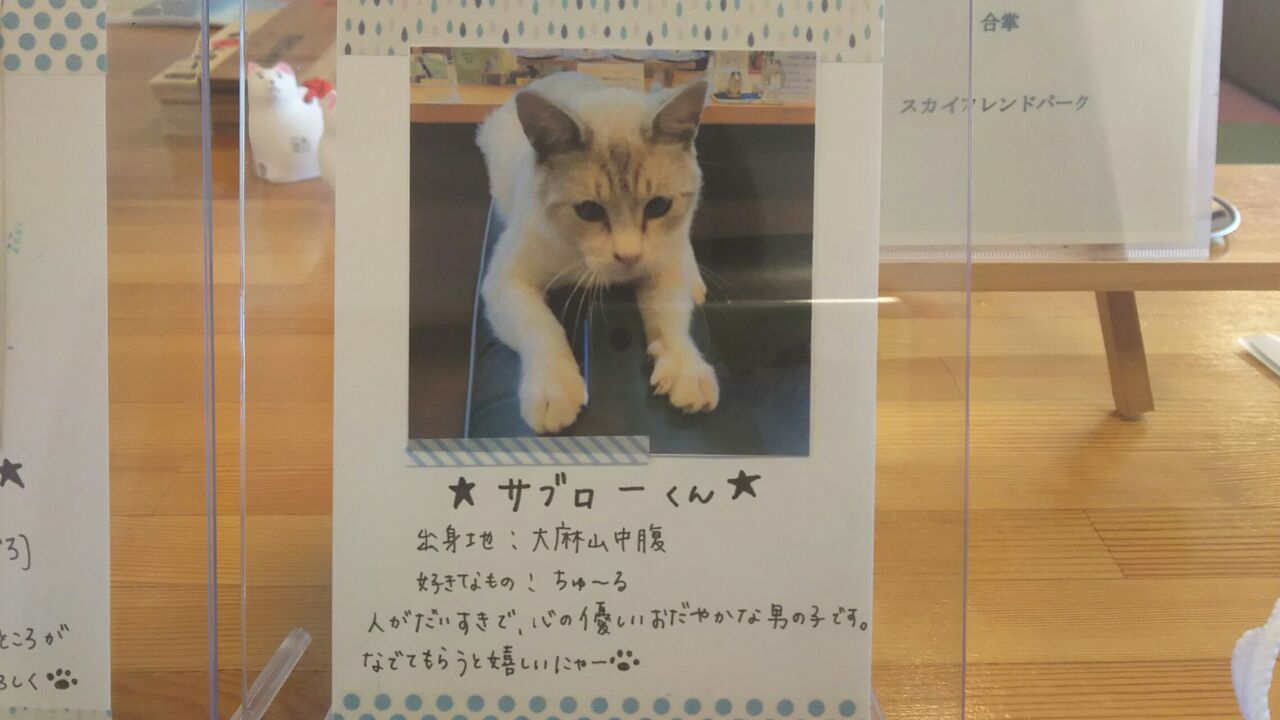 合掌
スカイフレンドパーク
★サブローくん★
出身地：大麻山中腹
好きなもの：ちゅ〜る
人がだいすきで、心の優しいおだやかな男の子です。
なでてもらうと嬉しいにゃー
★
ろ]
ところが
ろしく